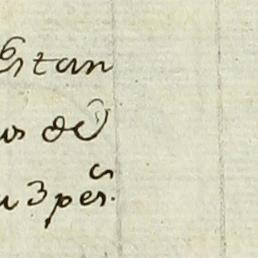 Estan
us de
u 3 pes.